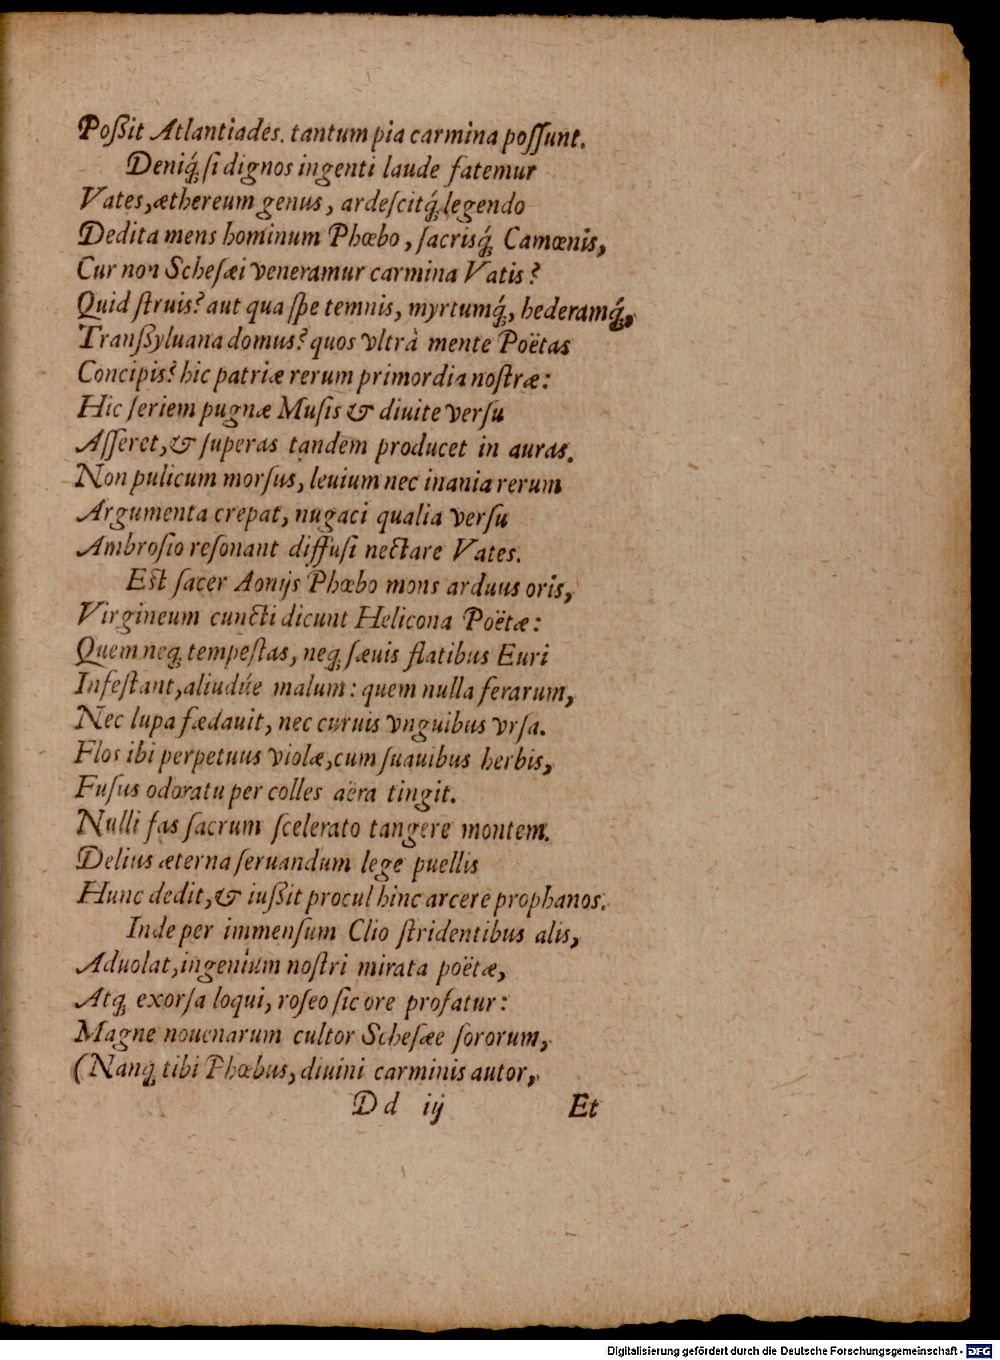 Poßit Atlantiades. tantum pia carmina poſſunt.
Deniq́; ſi dignos ingenti laude fatemur
Vates, æthereum genus, ardeſcitq́; legendo
Dedita mens hominum Phœbo, ſacrisq́; Camœnis,
Cur non Scheſæi veneramur carmina Vatis?
Quid ſtruis? aut qua ſpe temnis, myrtumq́;, hederamq́;,
Tranßyluana domus? quos vltrà mente Poëtas
Concipis? hic patriæ rerum primordia noſtræ:
Hic ſeriem pugnæ Muſis & diuite verſu
Aſſeret, & ſuperas tandem producet in auras.
Non pulicum morſus, leuium nec inania rerum
Argumenta crepat, nugaci qualia verſu
Ambroſio reſonant diffuſi nectare Vates.
Est ſacer Aonijs Phœbo mons arduus oris,
Virgineum cuncti dicunt Helicona Poëtæ:
Quem neq; tempeſtas, neq; ſæuis flatibus Euri
Infeſtant, aliudúe malum: quem nulla ferarum,
Nec lupa fædauit, nec curuis vnguibus vrſa.
Flos ibi perpetuus violæ, cum ſuauibus herbis,
Fuſus odoratu per colles aëra tingit.
Nulli fas ſacrum ſcelerato tangere montem.
Delius æterna ſeruandum lege puellis
Hunc dedit, & iußit procul hinc arcere prophanos.
Inde per immenſum Clio ſtridentibus alis,
Aduolat, ingenium noſtri mirata poëtæ,
Atq; exorſa loqui, roſeo ſic ore profatur:
Magne nouenarum cultor Scheſæe ſororum,
(Nanq; tibi Phœbus, diuini carminis autor,
Dd iij Et
Digitalisierung gefördert durch die Deutsche Forschungsgemeinschaft - DFG